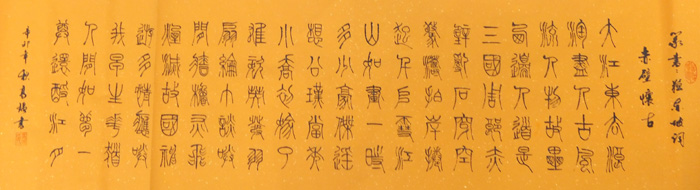 篆書蘇東坡詞
赤壁懷古
大江東去浪
淘盡千古風
流人物故壘
西邊人道是
三國周郎赤
壁亂石穿空
驚濤拍岸捲
起千堆雪江
山如畫一時
多少豪傑遙
想公瑾當年
小喬初嫁了
雄姿英發羽
扇綸巾談笑
間檣櫓灰飛
煙滅故國神
遊多情應笑
我早生華髮
人間如夢一
尊還酹江月
辛卯年秋書